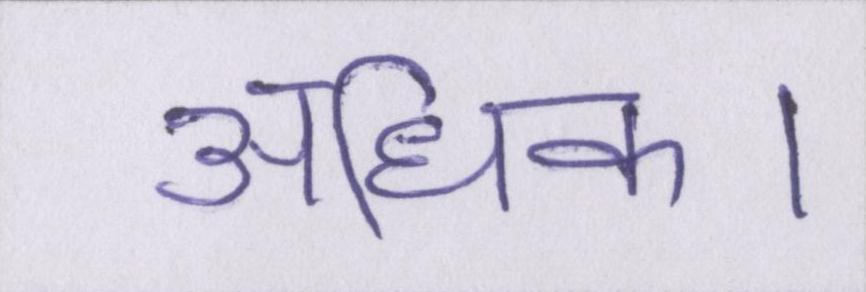 अधिक।